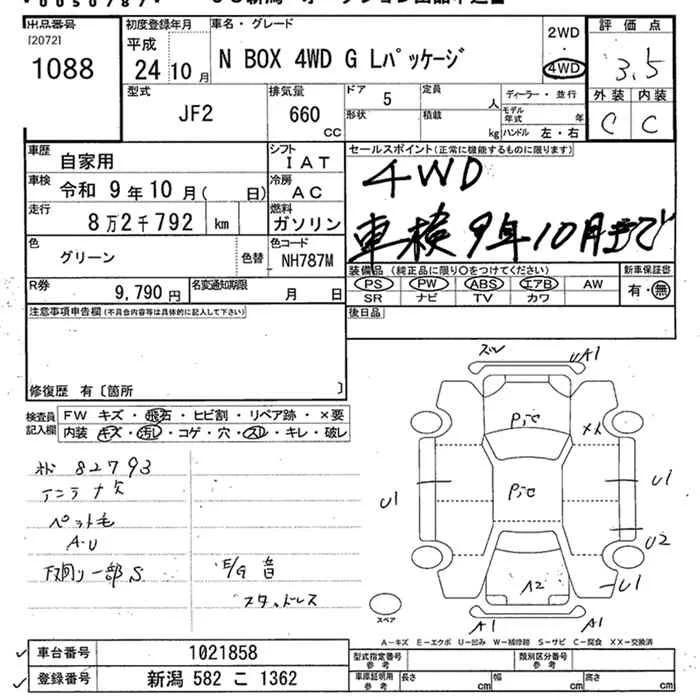 出品番号
[20721
1088
初度登録年月
平成
24 10 月
車名・グレード
N BOX 4WD G Lパッケージ
2WD
・
4WD
評価点
3.5
外装 内装
C C
型式
JF2
排気量
660
CC
ドア
5
定員
人
形状
積載
kg
ディーラー・並行
モデル年式
年
ハンドル 左・右
車歴
自家用
シフト
IAT
車検
令和 9 年 10 月( 日)
冷房
AC
走行
8 万 2 千 792 km
燃料
ガソリン
色
グリーン
色替
色コード
NH787M
R券
9,790 円
名変通知期限
月 日
セールスポイント(正常に機能するものに限ります)
4WD
車検9年10月まで
装備品 (純正品に限り○をつけてください)
PS PW ABS エアB AW
SR ナビ TV カワ
新車保証書
有・無
後日品
注意事項申告欄(不具合内容等は具体的に記入して下さい)
修復歴 有〔箇所 〕
検査員
記入欄
FW キズ・飛石・ヒビ割・リペア跡・×要
内装 キズ・汚レ・コゲ・穴・スレ・キレ・破レ
82793
アンテナ欠
ペット毛
A・U
下廻り一部S
E/G 音
スタッドレス
ズレ
UA1
Pic
Pic
U1
U1
U2
U1
A2
A1
A1
スペア
A－キズ E－エクボ U－凹み W－補修跡 S－サビ C－腐食 XX－交換済
車台番号
1021858
登録番号
新潟 582 こ 1362
型式指定番号
参考
類別区分番号
参考
車庫証明用
参考
長さ
cm
幅
cm
高さ
cm